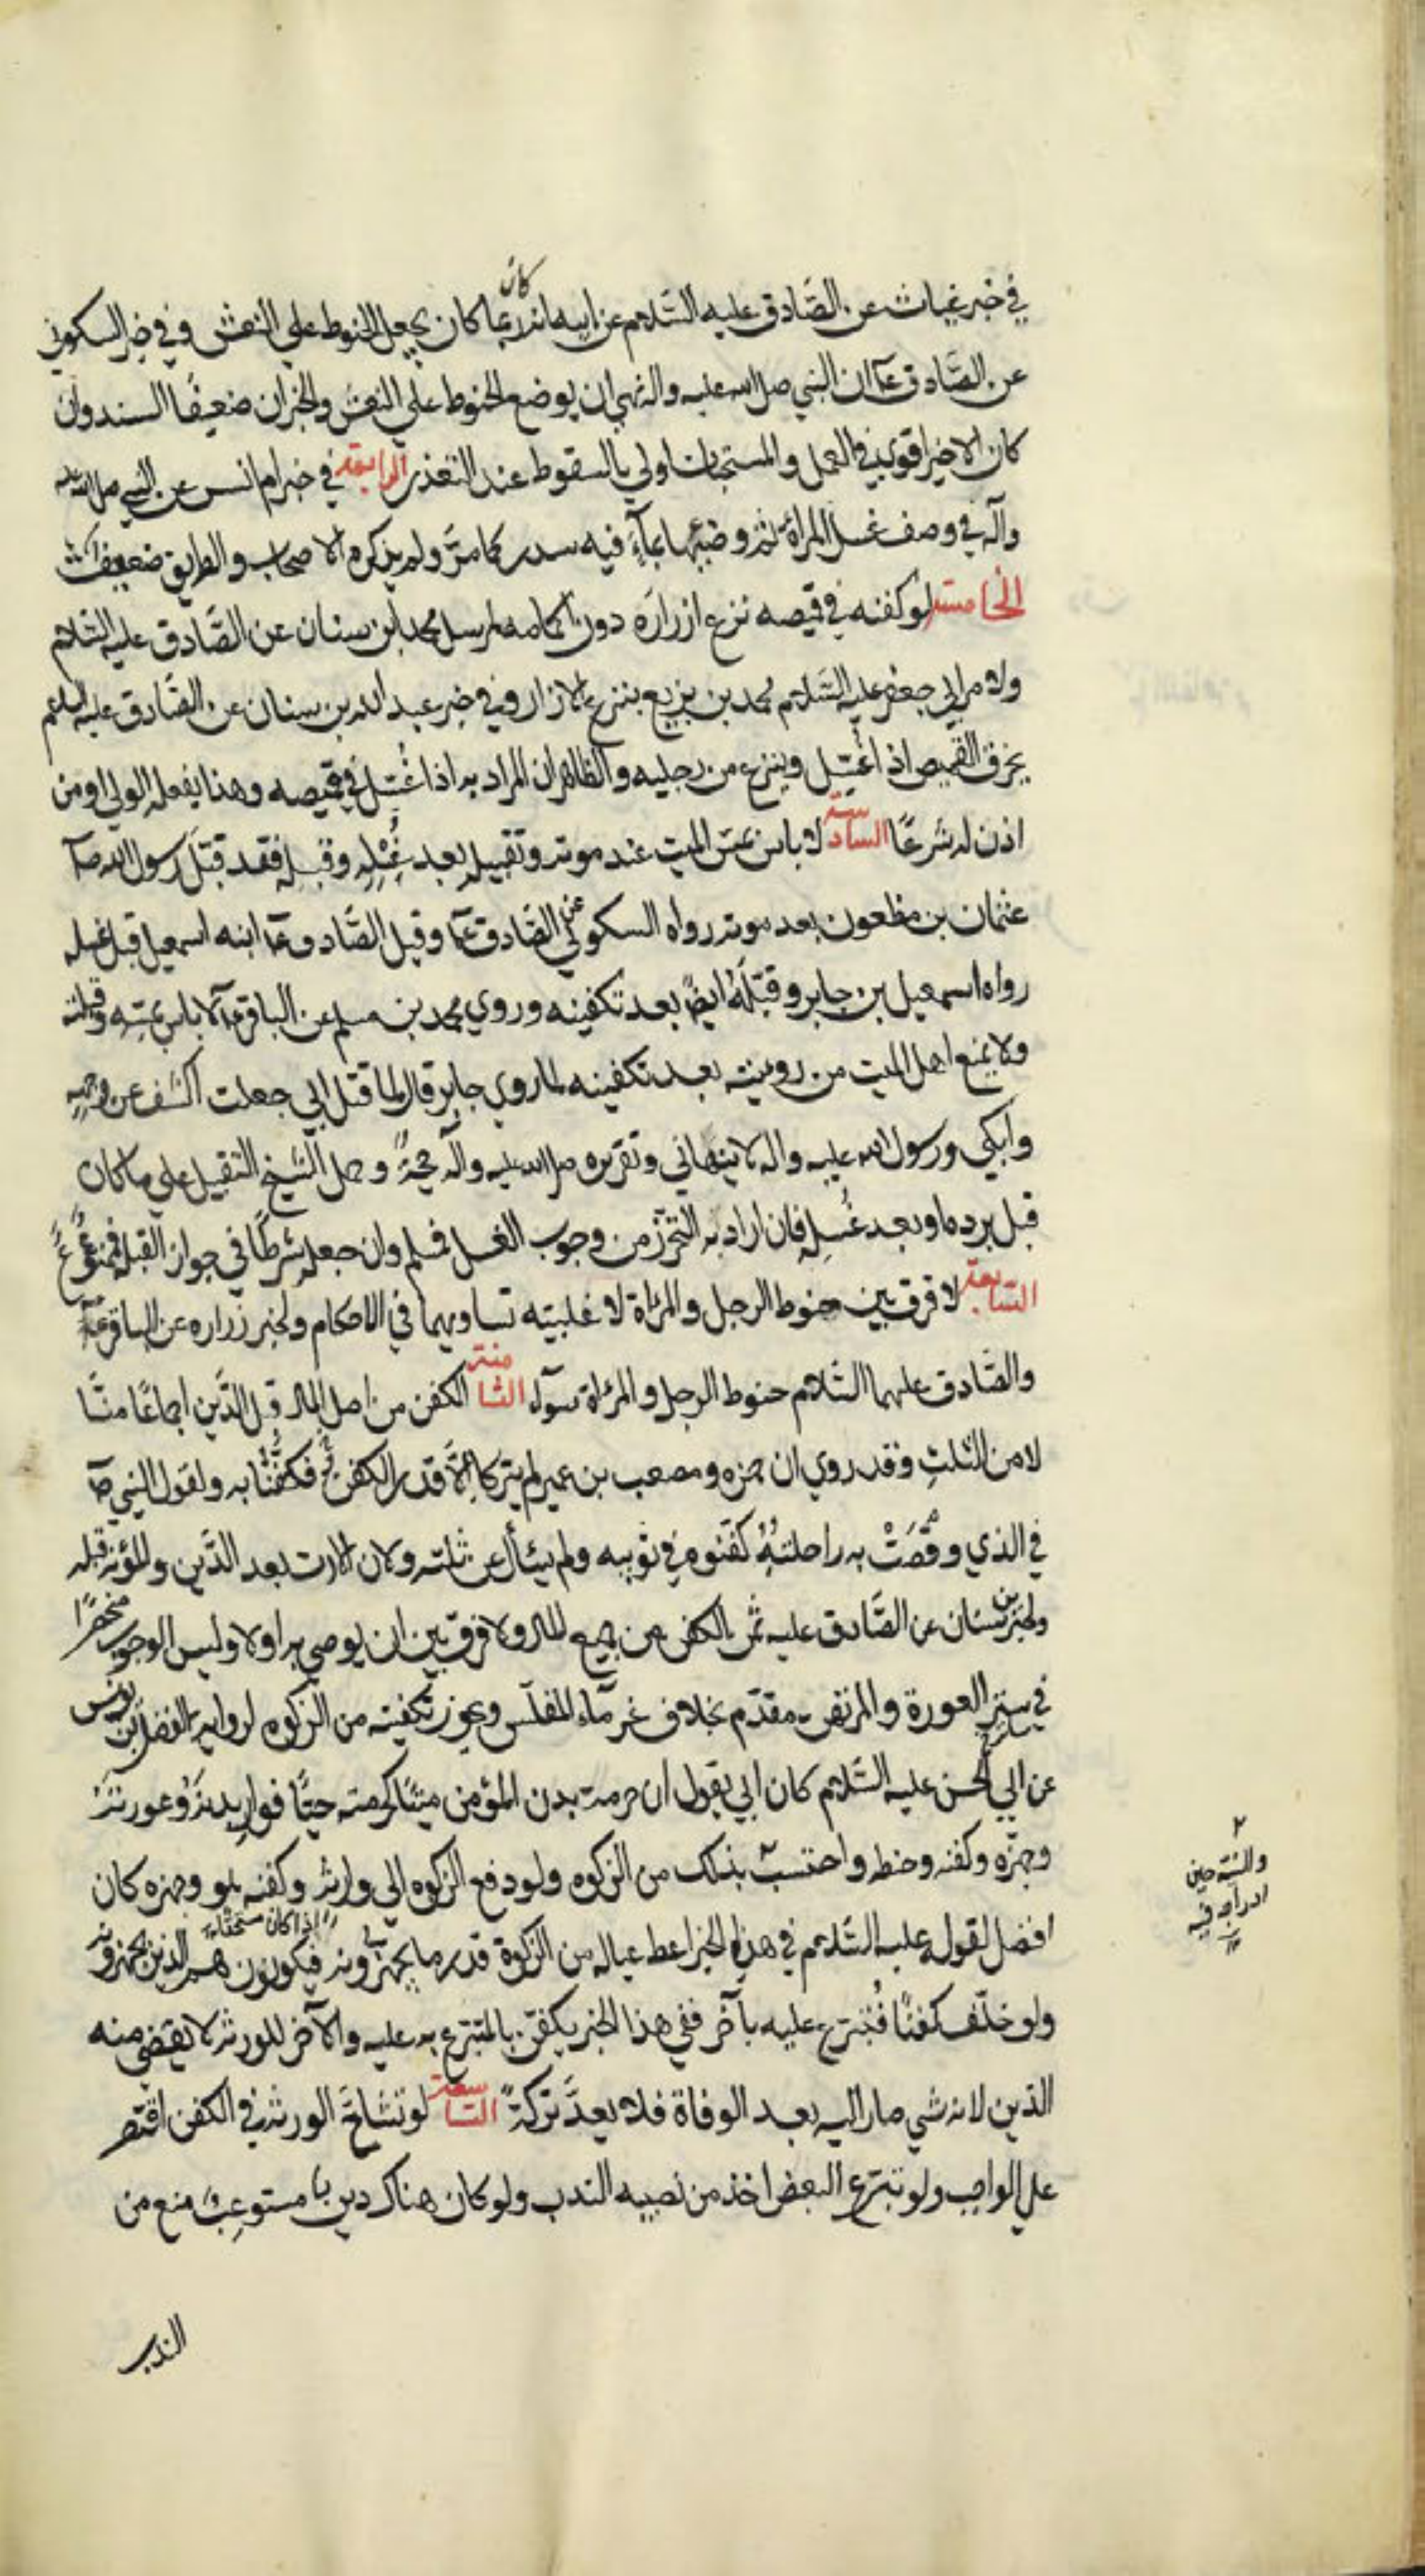 في خبر غياث عن الصّادق عليه السّلام عن ابيه انه ربما كان يجعل الحنوط على النعش وفي خبر السكوني
عن الصّادق عآ ان النبي صلى الله عليه واله نهى ان يوضع الحنوط على النعش والخبران ضعيفا السند وان
كان الاخير اقوى في العمل والمستحبات اولى بالسقوط عند التعذر الرابعة في خبر ام انس عن النبي صلى الله عليه
وآله في وصف غسل المرأة ثم وضيّها بماءٍ فيه سدر كما مرّ ولم يذكره الاصحاب والطريق ضعيف
الخامسة لو كفنه في قميصه نزع ازراره دون اكمامه لمرسل محمد ابن سنان عن الصّادق عليه السّلام
ولامر ابي جعفر عليه السّلام محمد بن بزيع بنزع الازرار وفي خبر عبد الله بن سنان عن الصّادق عليه السلام
يخرق القميص اذا غُسِّل وينزع من رجليه والظاهر ان المراد به اذا غُسّل في قميصه وهذا يفعله الولي او من
اذن له شرعًا السادسة لا باس بمسّ الميت عند موته وتقبيله بعد غُسْلِه وقبله فقد قبّل رسول الله صآ
عثمان بن مظعون بعد موته رواه السكوني عن الصّادق عآ وقبل الصّادق عآ ابنه اسمعيل قبل غسله
رواه اسمعيل بن جابر وقبّلَهُ ايضًا بعد تكفينه وروي محمد بن مسلم عن الباقر عآ لا باس بمسّه وقبلته
ولا يمنع اهل الميت من رويته بعد تكفينه لما روي جابر قال لما قتل ابي جعلت اكشف عن وجهه
وابكي ورسول الله عليه واله لا ينهاني وتقريره صلى الله عليه وآله حجّةٌ وحمل الشيخ التقبيل على ما كان
قبل برده او بعد غُسلِهِ فان اراد به التحرّز من وجوب الغسل فسلم وان جعله شرطًا في جواز القبلة فممنوعٌ
السّابعة لا فرق بين حنوط الرجل والمراة لاغلبيته تساويهما في الاحكام ولخبر زراره عن الباقر عآ
والصّادق عليهما السّلام حنوط الرجل والمرءاة سوآء الثامنة الكفن من اصل المال قبل الدّين اجماعًا منّا
لا من الثلثِ وقد روي ان حمزه ومصعب بن عمير لم يتركا الّا قدر الكفن فكُفِّنّا به ولقول النبي صآ
في الذي وُقِصَتْ به راحلتُهُ كفّنوه في ثوبيه ولم يسأل عن ثلثه ولان الارث بعد الدّين والمؤنة قبله
ولخبر ابن سنان عن الصّادق عليه ثمن الكفن من جميع المال ولا فرق بين ان يوصي به اولا وليس الوجوب منحصرًا
في ستر العورة والمرتهن مقدّم بخلاف غرمآء المفلّس ويجوز تكفينه من الزكوة لرواية الفضل بن يونس
عن ابي الحسن عليه السّلام كان ابي يقول ان حرمة بدن المؤمن ميتًا كحرمته حيًّا فوارِ بدنَهُ وعورتَهُ
وجهزّه وكفنه وحنطه واحتسبْ بذلك من الزكوه ولو دفع الزكوه الى وارثه وكفنه هو وجهزه كان
افضل لقوله عليه السّلام في هذا الخبر اعط عياله من الزكوة قدر ما يجهّزونه فيكونون هم الذين يجهزونه
اذا كان مستحقا
ولو خلّف كفنًا فتُبرّع عليه بآخر ففي هذا الخبر يكفّن بالمتبرّع به عليه والآخر للورثة لا يقضى منه
الدّين لانه شي صار اليه بعد الوفاة فلا يعدّ تركةً التاسعة لو تشاحّ الورثة في الكفن اقتصر
على الواجب ولو تبرّع البعض اخذ من نصيبه الندب ولو كان هناك دين مستوعِبٌ منع من
الندب